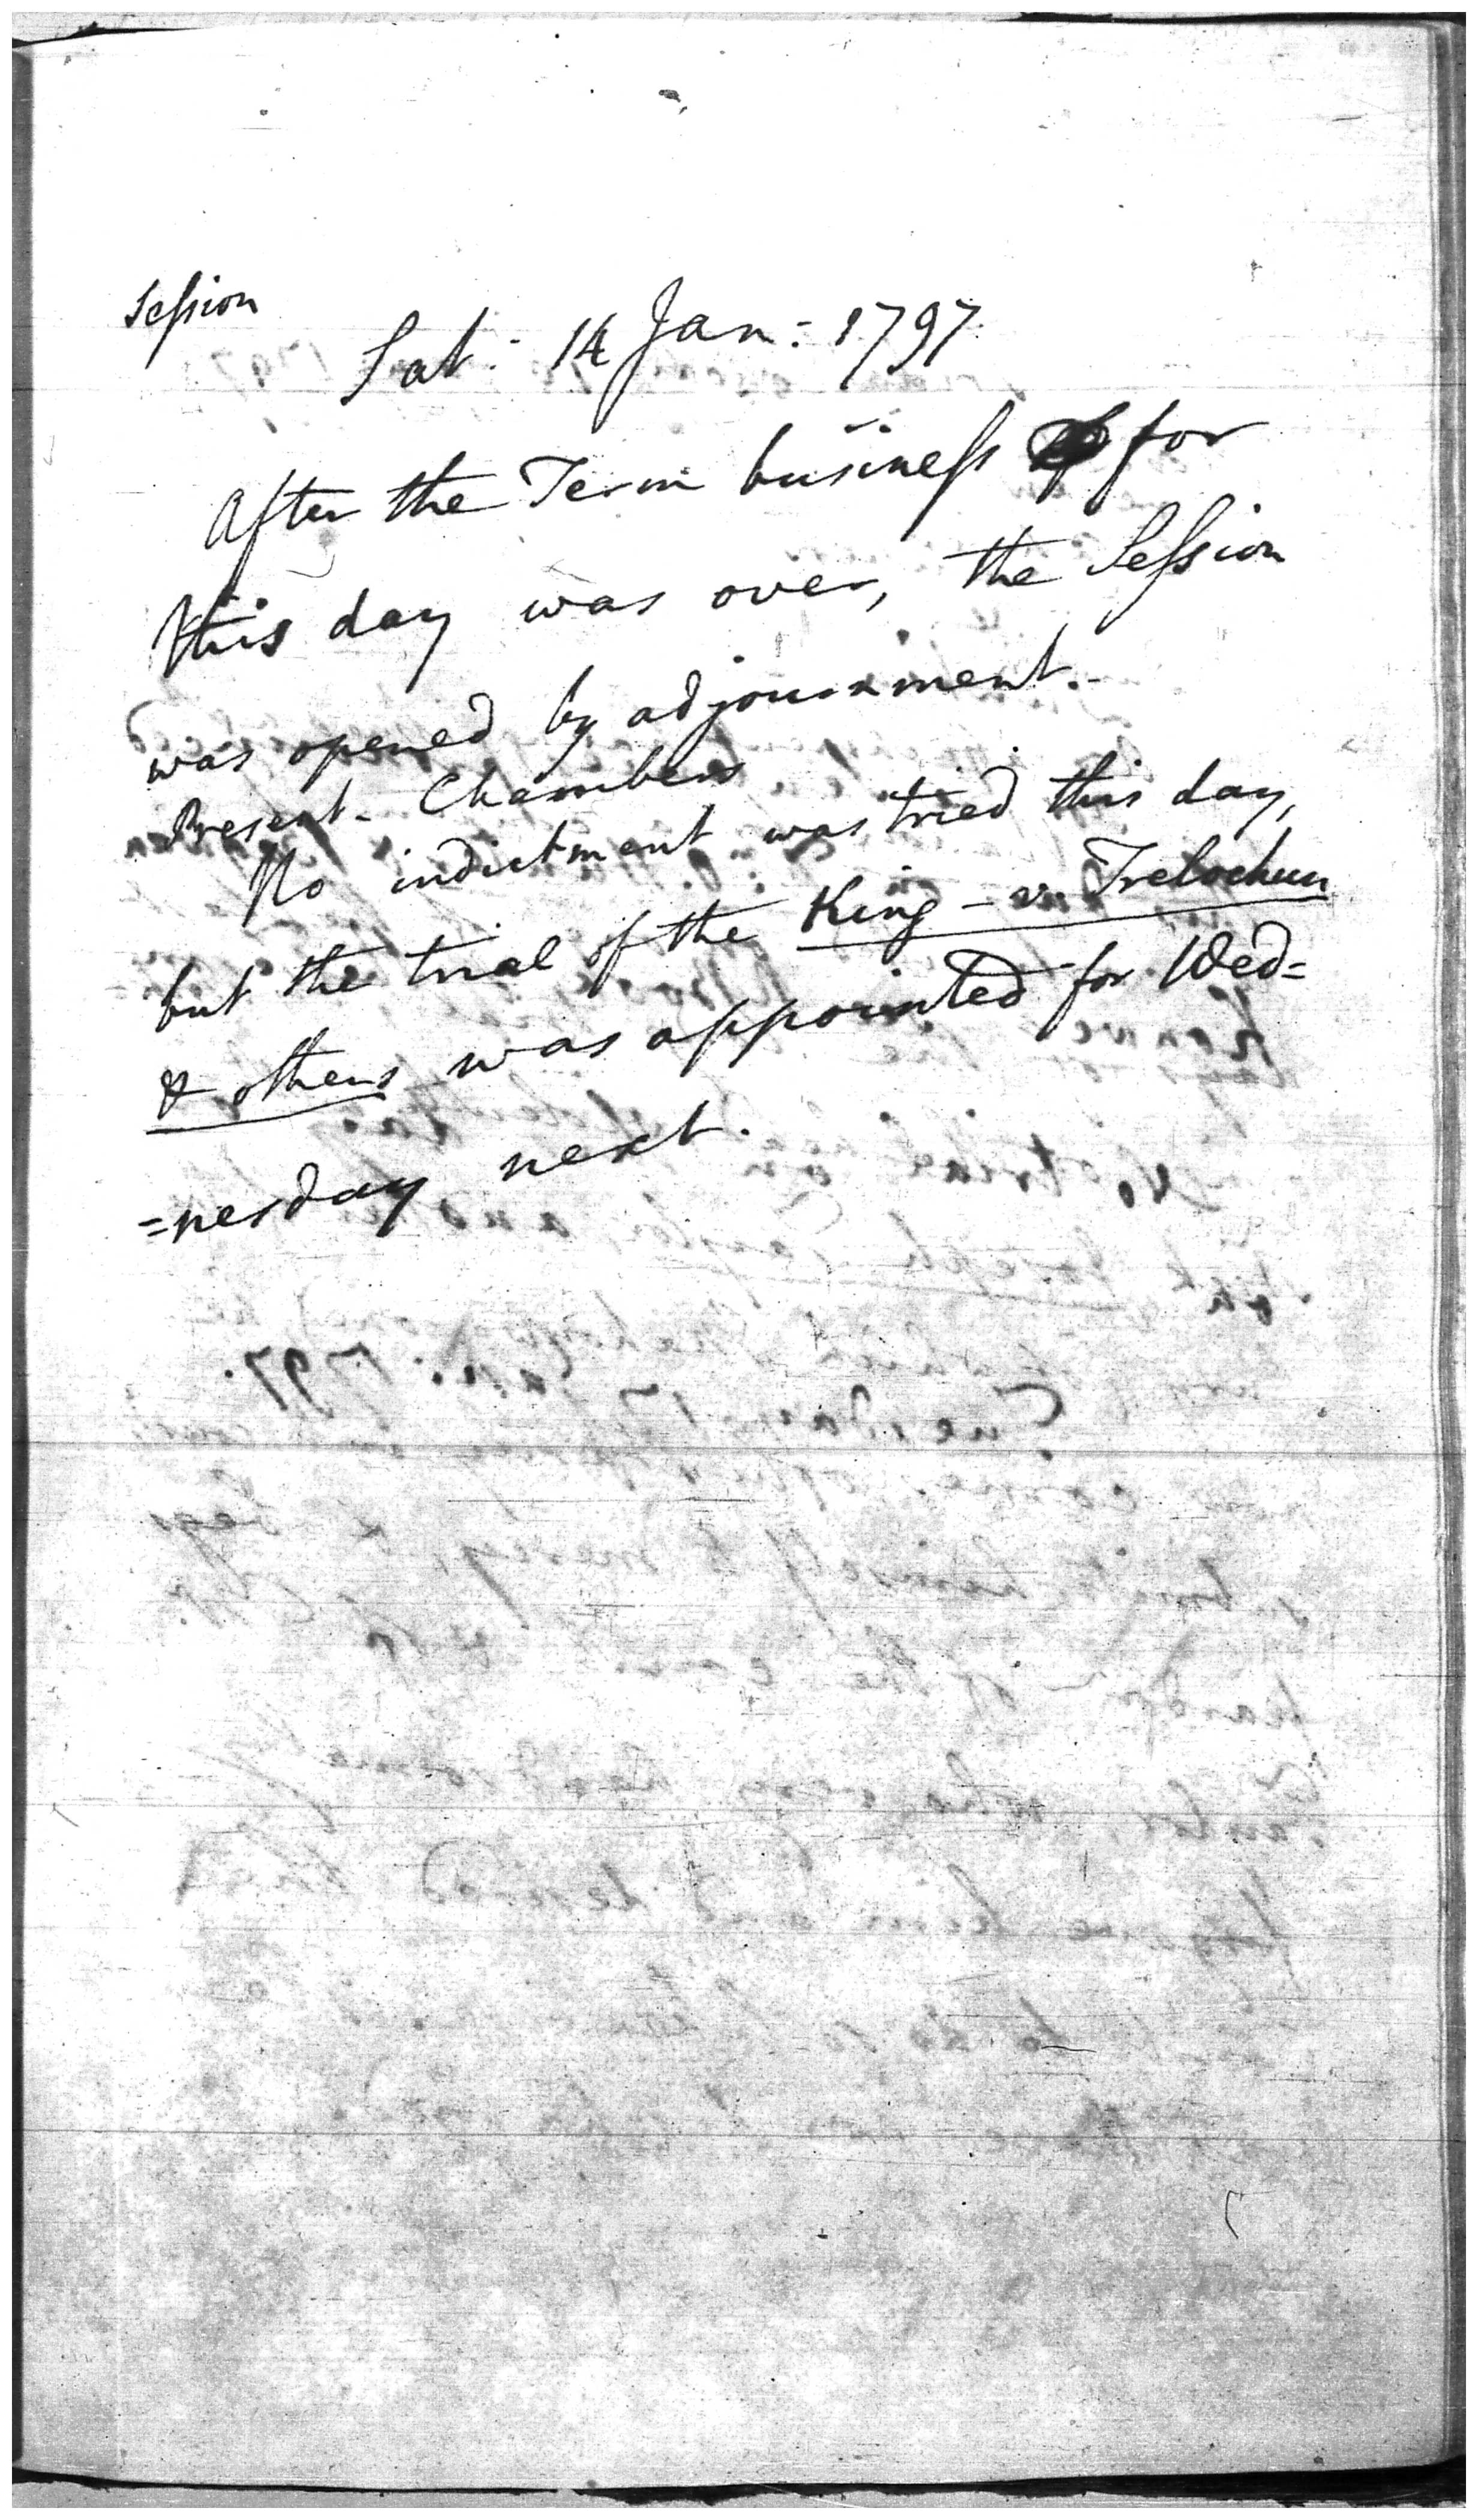 Session
Sat: 14 Jan: 1797
After the Term business for
this day was over, the Session
was opened by adjournment.
Present - Chambers
No indictment was tried this day,
but the trial of the King - v. Trelochun
& others was appointed for Wed=
=nesday next.